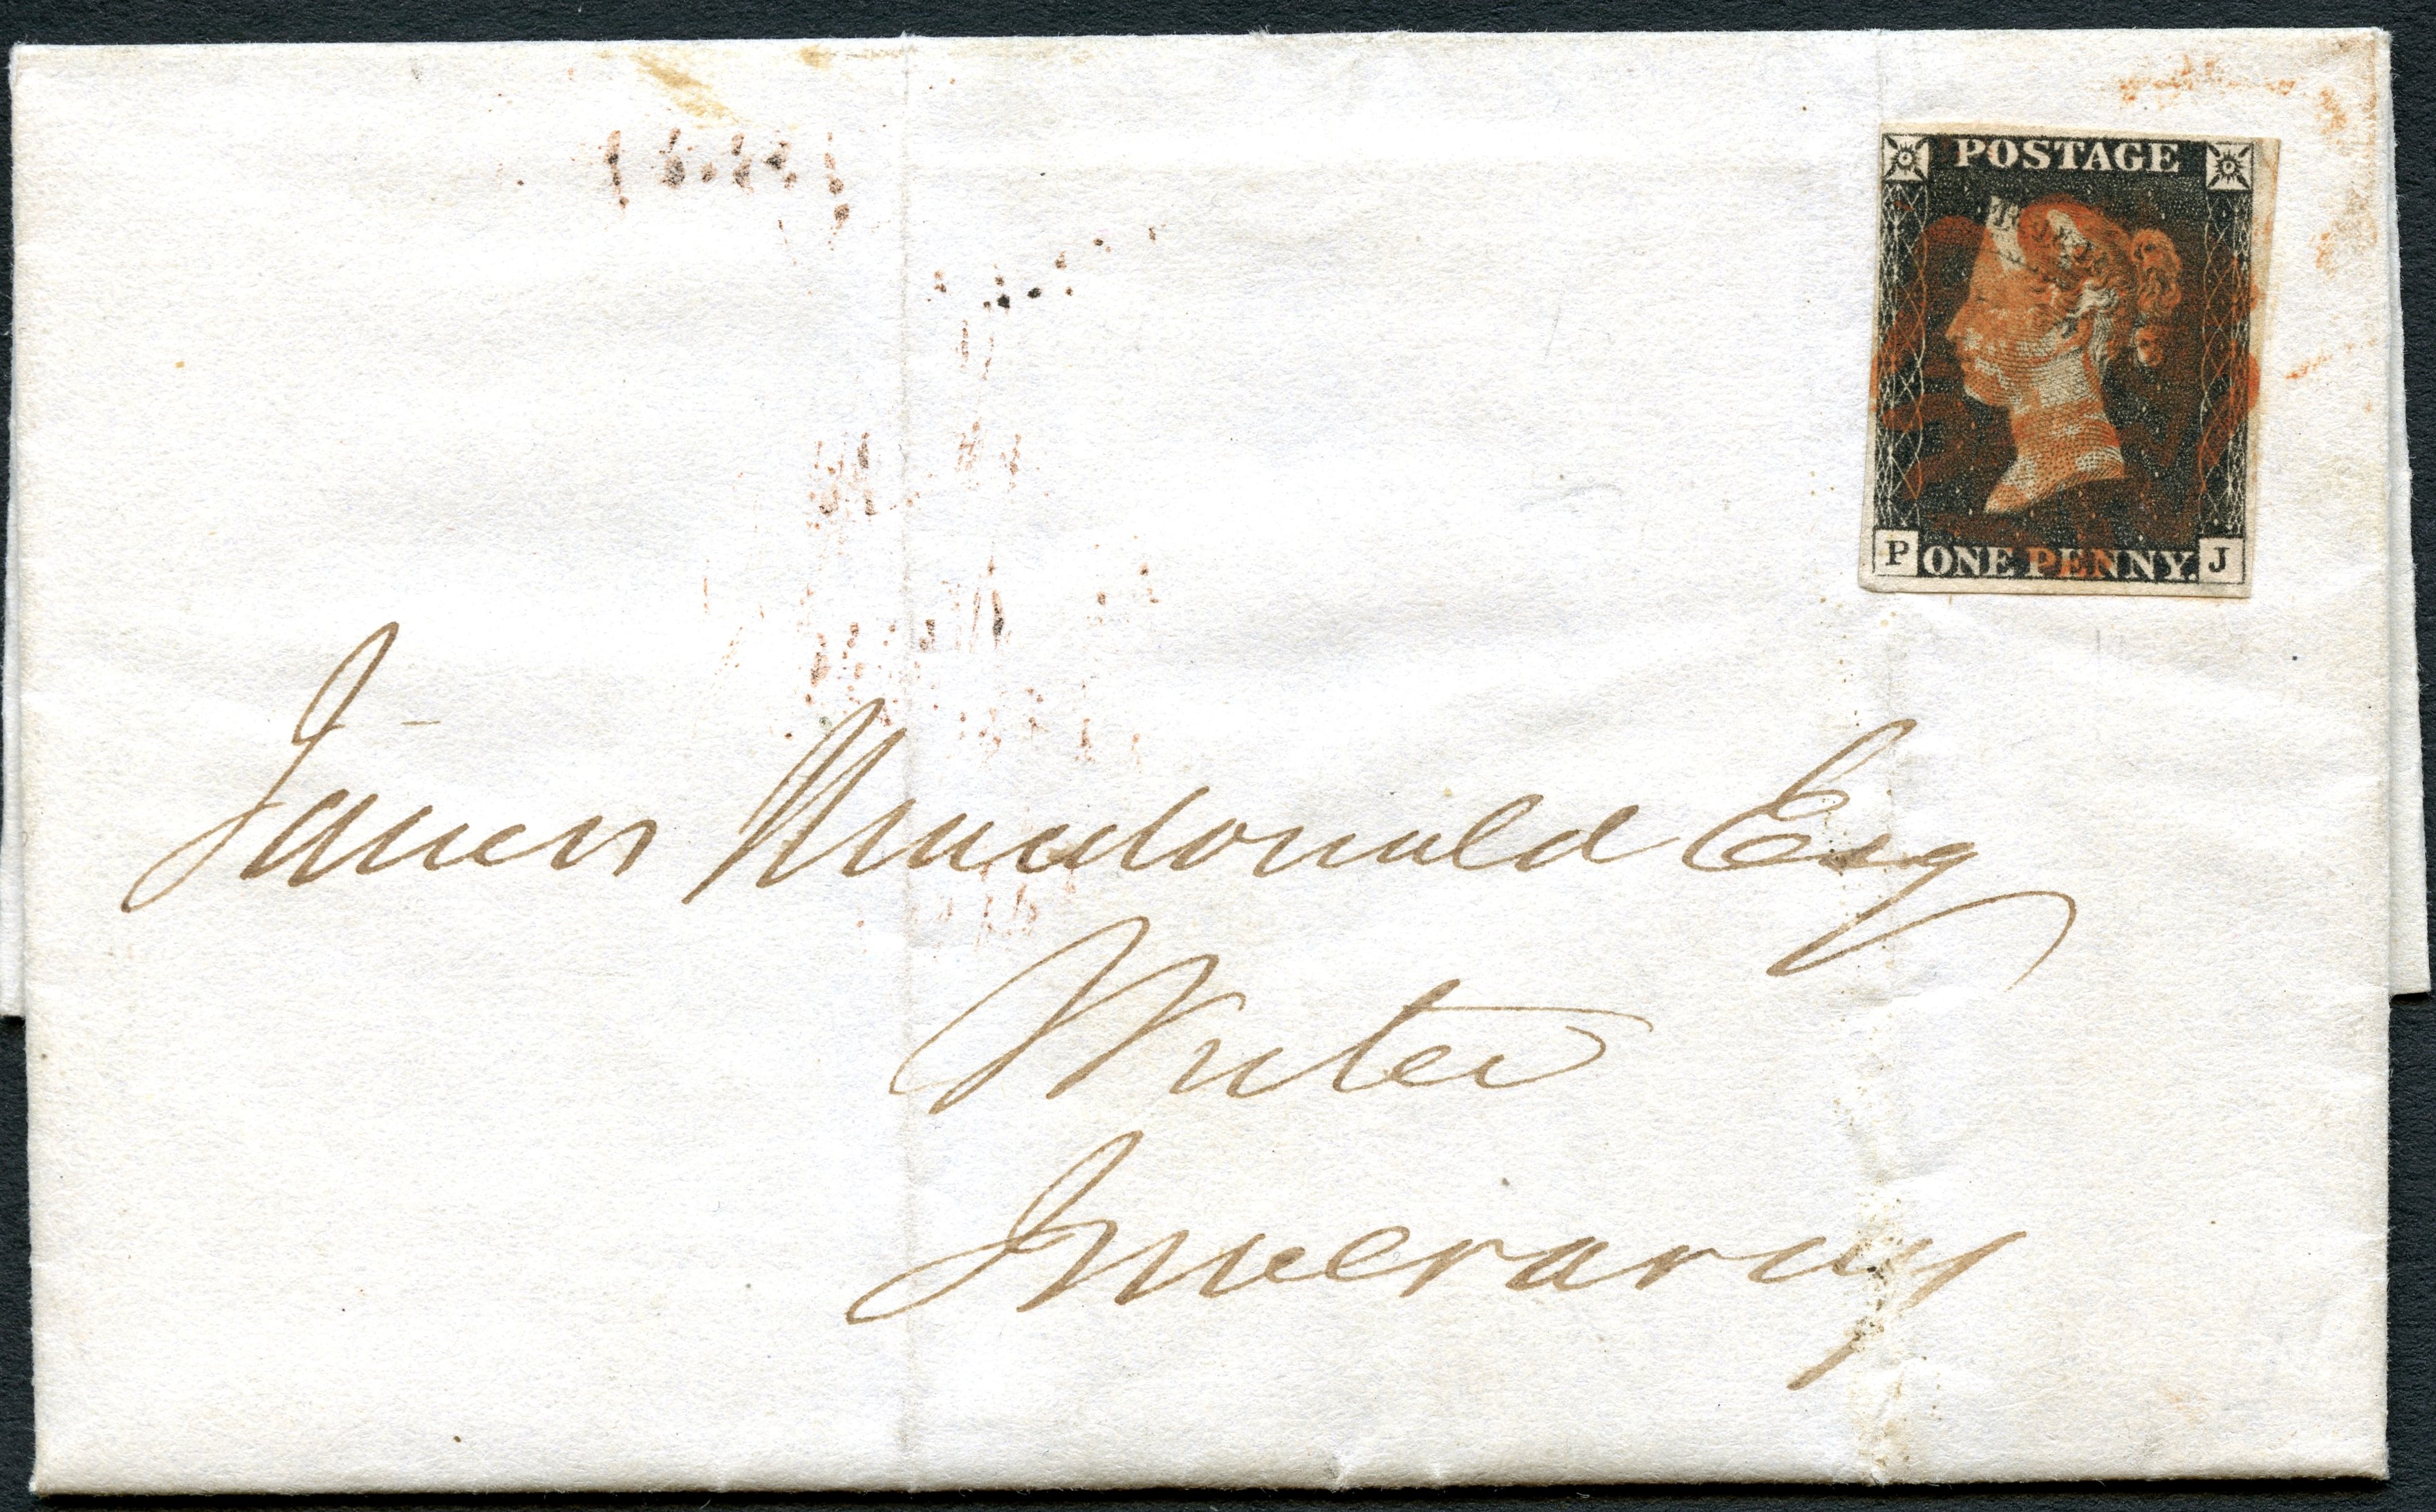 POSTAGE
P ONE PENNY. J
James Macdonald Esq
Writer
Inveraray